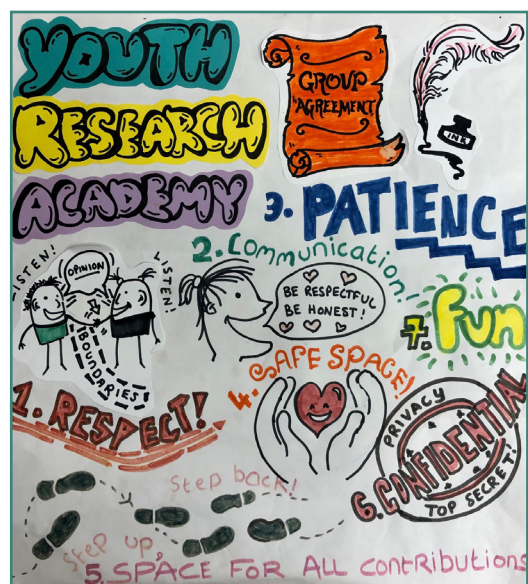 YOUTH
RESEARCH
ACADEMY
GROUP
AGREEMENT
INK
3. PATIENCE
2. Communication!
LISTEN!
OPINION
LISTEN!
BOUNDARIES
BE RESPECTFUL
BE HONEST!
7. Fun
1. RESPECT!
4. SAFE SPACE!
PRIVACY
6. CONFIDENTIAL
TOP SECRET!
Step back!
Step up,
5. SPACE FOR ALL contributions